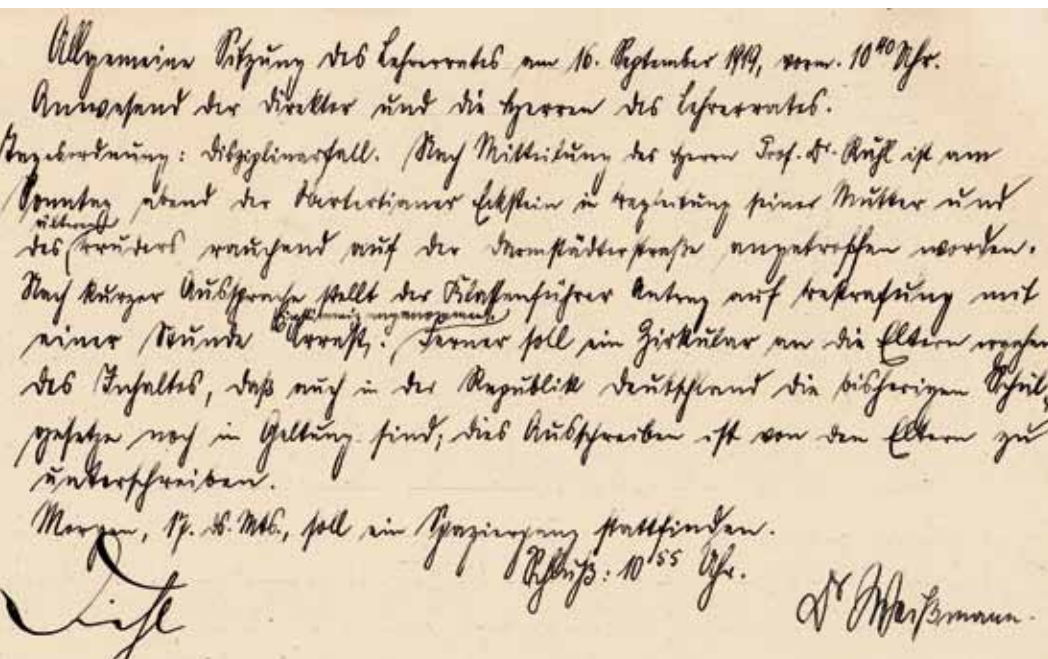 Allgemeine Sitzung des Lehrerrates am 16. September 1919, vorm. 10⁴⁰ Uhr.
Anwesend der Direktor und die Herren des Lehrerrates.
Tagesordnung: Disziplinarfall. Nach Mitteilung des Herrn Prof. Dr. Rühl ist am
Sonntag abend der Obertertianer Eckstein in Begleitung seiner Mutter und
älteren
des Bruders rauchend auf der Darmstädterstraße angetroffen worden.
Nach kurzer Aussprache stellt der Klassenführer Antrag auf Bestrafung mit
Einstimmig angenommen
einer Stunde Arrest. Ferner soll ein Zirkular an die Eltern ergehen
des Inhaltes, daß auch in der Republik Deutschland die bisherigen Schul-
gesetze noch in Geltung sind; dies Ausschreiben ist von den Eltern zu
unterschreiben.
Morgen, 17. ds. Mts., soll ein Spaziergang stattfinden.
Schluß: 10⁵⁵ Uhr.
Diehl
Dr Weißmann.